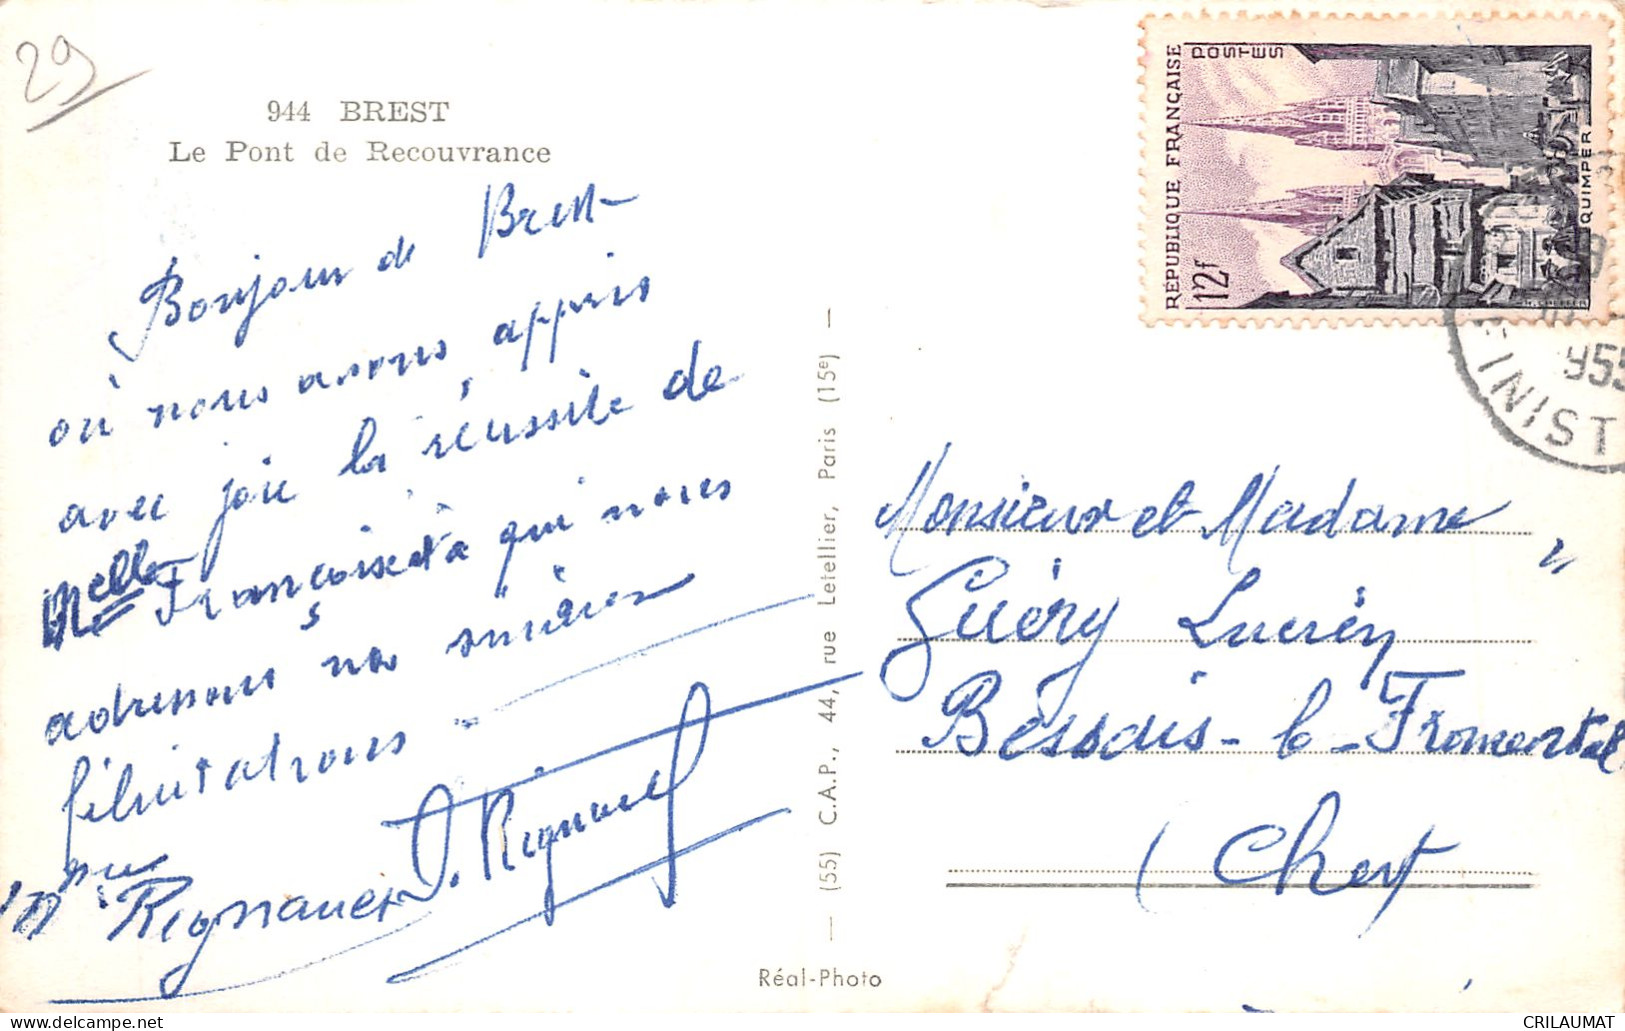 29
944 BREST
Le Pont de Recouvrance
Bonjour de Brest
où nous avons appris
avec joie la réussite de
Melle Françoise à qui nous
adressons nos sincères
félicitations
Mme Regnauer J. Regnauer
(55) C.A.P., 44, rue Letellier, Paris (15e)
Réal-Photo
RÉPUBLIQUE FRANÇAISE
POSTES
12f
QUIMPER
955
FINIST
Monsieur et Madame
Guéry Lucien
Bessais-le-Fromental
(Cher
CRILAUMAT